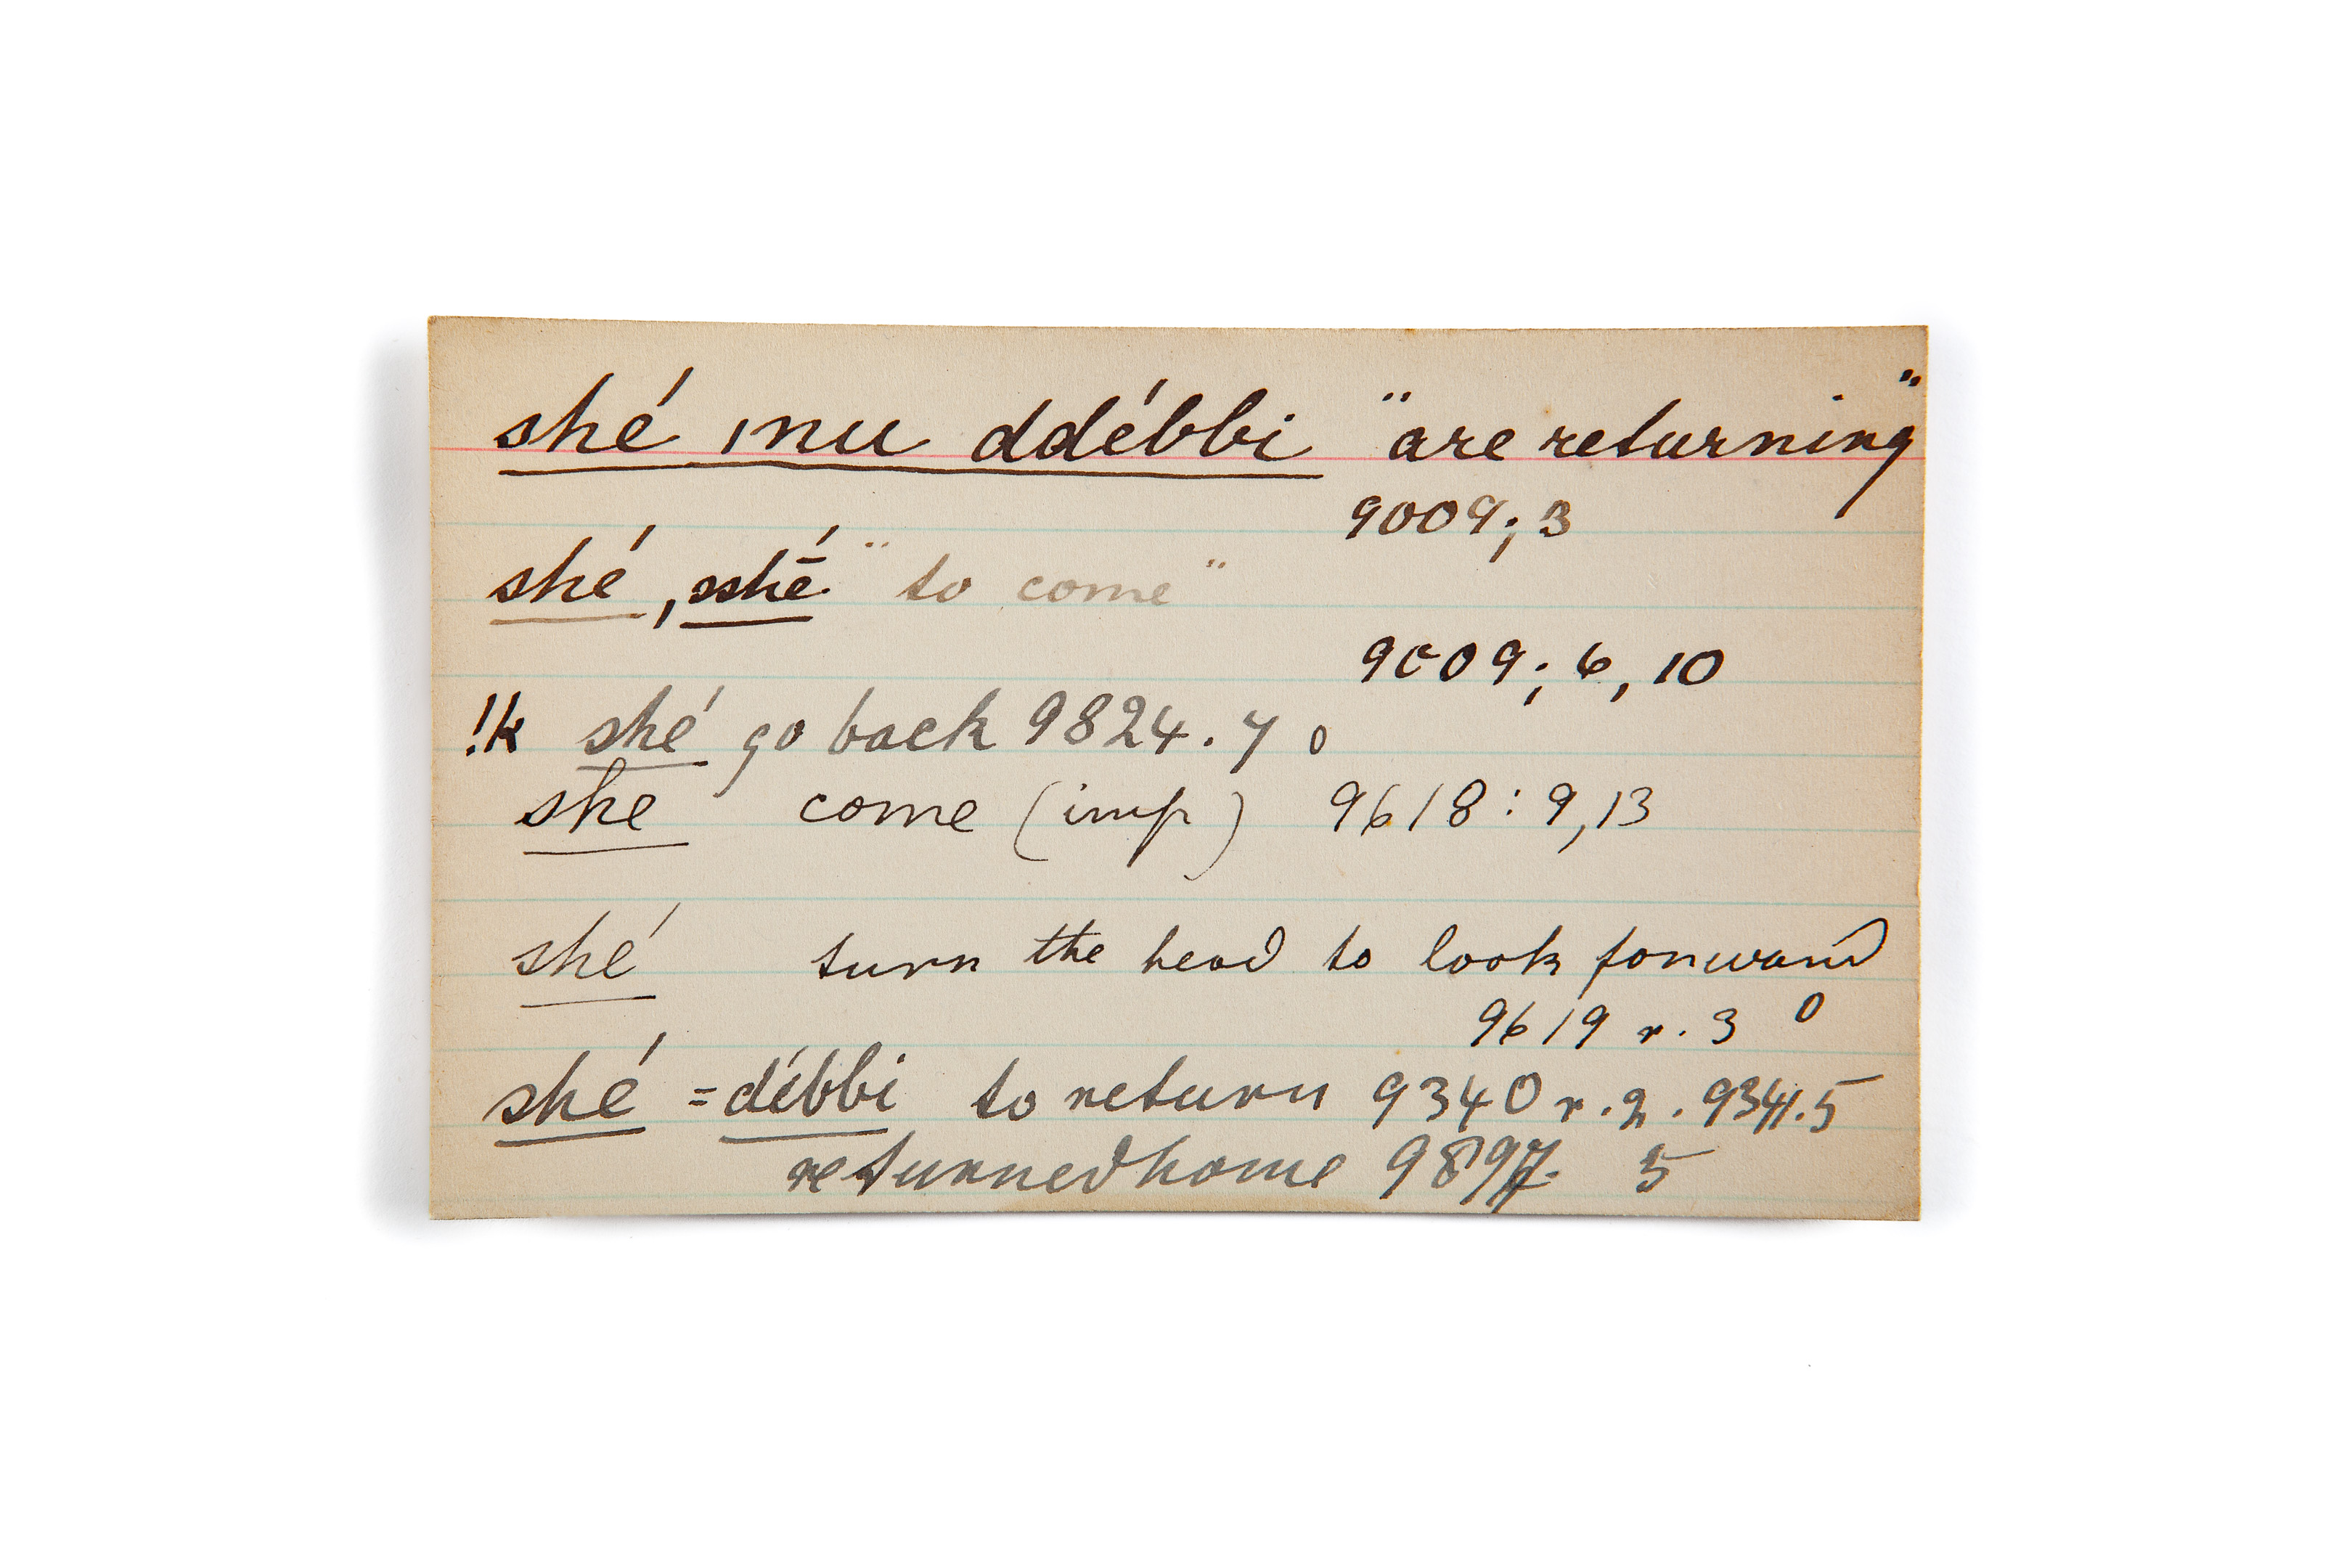 shé mu ddébbi "are returning"
9009; 3
shé, sshḗ "to come"
9009; 6, 10
!k shé go back 9824. 7 0
she come (imp) 9618: 9,13
shé turn the head to look forward
9619 r. 3 0
shé = débbi to return 9340 r. 2. 9341.5
returned home 9897. 5